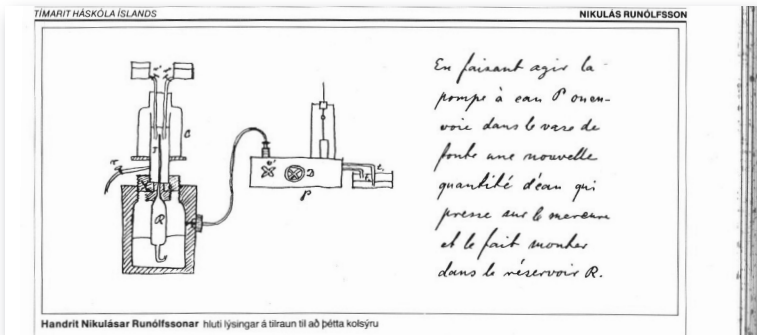 TÍMARIT HÁSKÓLA ÍSLANDS
NIKULÁS RUNÓLFSSON
En faisant agir la
pompe à eau P on en-
voie dans le vase de
fonte une nouvelle
quantité d'eau qui
presse sur le mercure
et le fait monter
dans le réservoir R.
C
T
r
R
P
D
Handrit Nikulásar Runólfssonar hluti lýsingar á tilraun til að þétta kolsýru